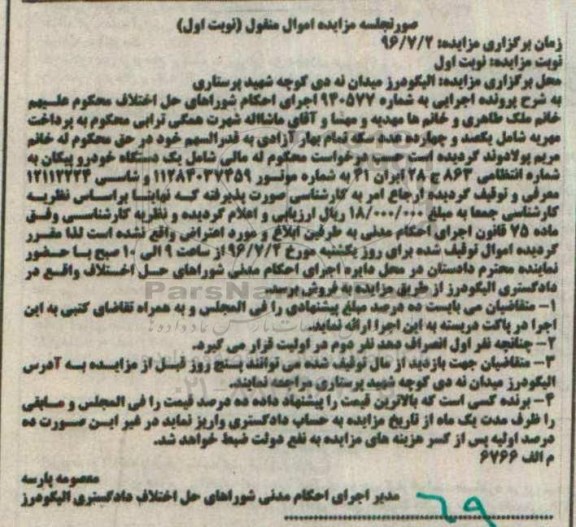 صورتجلسه مزایده اموال منقول (نوبت اول)
زمان برگزاری مزایده: ۹۶/۷/۲
نوبت مزایده: نوبت اول
محل برگزاری مزایده: الیگودرز میدان نه دی کوچه شهید پرستاری
به شرح پرونده اجرایی به شماره ۹۴۰۵۷۷ اجرای احکام شوراهای حل اختلاف محکوم علیهم
خانم ملک طاهری و خانم ها مهدیه و مهسا و آقای ماشااله شهرت همگی ترابی محکوم به پرداخت
مهریه شامل یکصد و چهارده عدد سکه تمام بهار آزادی به قدرالسهم خود در حق محکوم له خانم
مریم پولادوند گردیده است حسب درخواست محکوم له مالی شامل یک دستگاه خودرو پیکان به
شماره انتظامی ۸۶۳ ج ۲۸ ایران ۴۱ به شماره موتور ۱۱۲۸۴۰۳۷۴۵۹ و شاسی ۱۲۱۱۲۲۲۴
معرفی و توقیف گردیده ارجاع امر به کارشناسی صورت پذیرفته که نهایتا براساس نظریه
کارشناسی جمعا به مبلغ ۱۸/۰۰۰/۰۰۰ ریال ارزیابی و اعلام گردیده و نظریه کارشناسی وفق
ماده ۷۵ قانون اجرای احکام مدنی به طرفین ابلاغ و مورد اعتراض واقع نشده است لذا مقرر
گردیده اموال توقیف شده برای روز یکشنبه مورخ ۹۶/۷/۲ از ساعت ۹ الی ۱۰ صبح با حضور
نماینده محترم دادستان در محل دایره اجرای احکام مدنی شوراهای حل اختلاف واقع در
دادگستری الیگودرز از طریق مزایده به فروش برسد.
۱- متقاضیان می بایست ده درصد مبلغ پیشنهادی را فی المجلس و به همراه تقاضای کتبی به این
اجرا در پاکت دربسته به این اجرا ارائه نماید.
۲- چنانچه نفر اول انصراف دهد نفر دوم در اولیت قرار می گیرد.
۳- متقاضیان جهت بازدید از مال توقیف شده می توانند پنج روز قبل از مزایده به آدرس
الیگودرز میدان نه دی کوچه شهید پرستاری مراجعه نمایند.
۴- برنده کسی است که بالاترین قیمت را پیشنهاد داده ده درصد قیمت را فی المجلس و مابقی
را ظرف مدت یک ماه از تاریخ مزایده به حساب دادگستری واریز نماید در غیر این صورت ده
درصد اولیه پس از کسر هزینه های مزایده به نفع دولت ضبط خواهد شد.
م الف ۶۷۶۶
معصومه پارسه
مدیر اجرای احکام مدنی شوراهای حل اختلاف دادگستری الیگودرز
۶۹